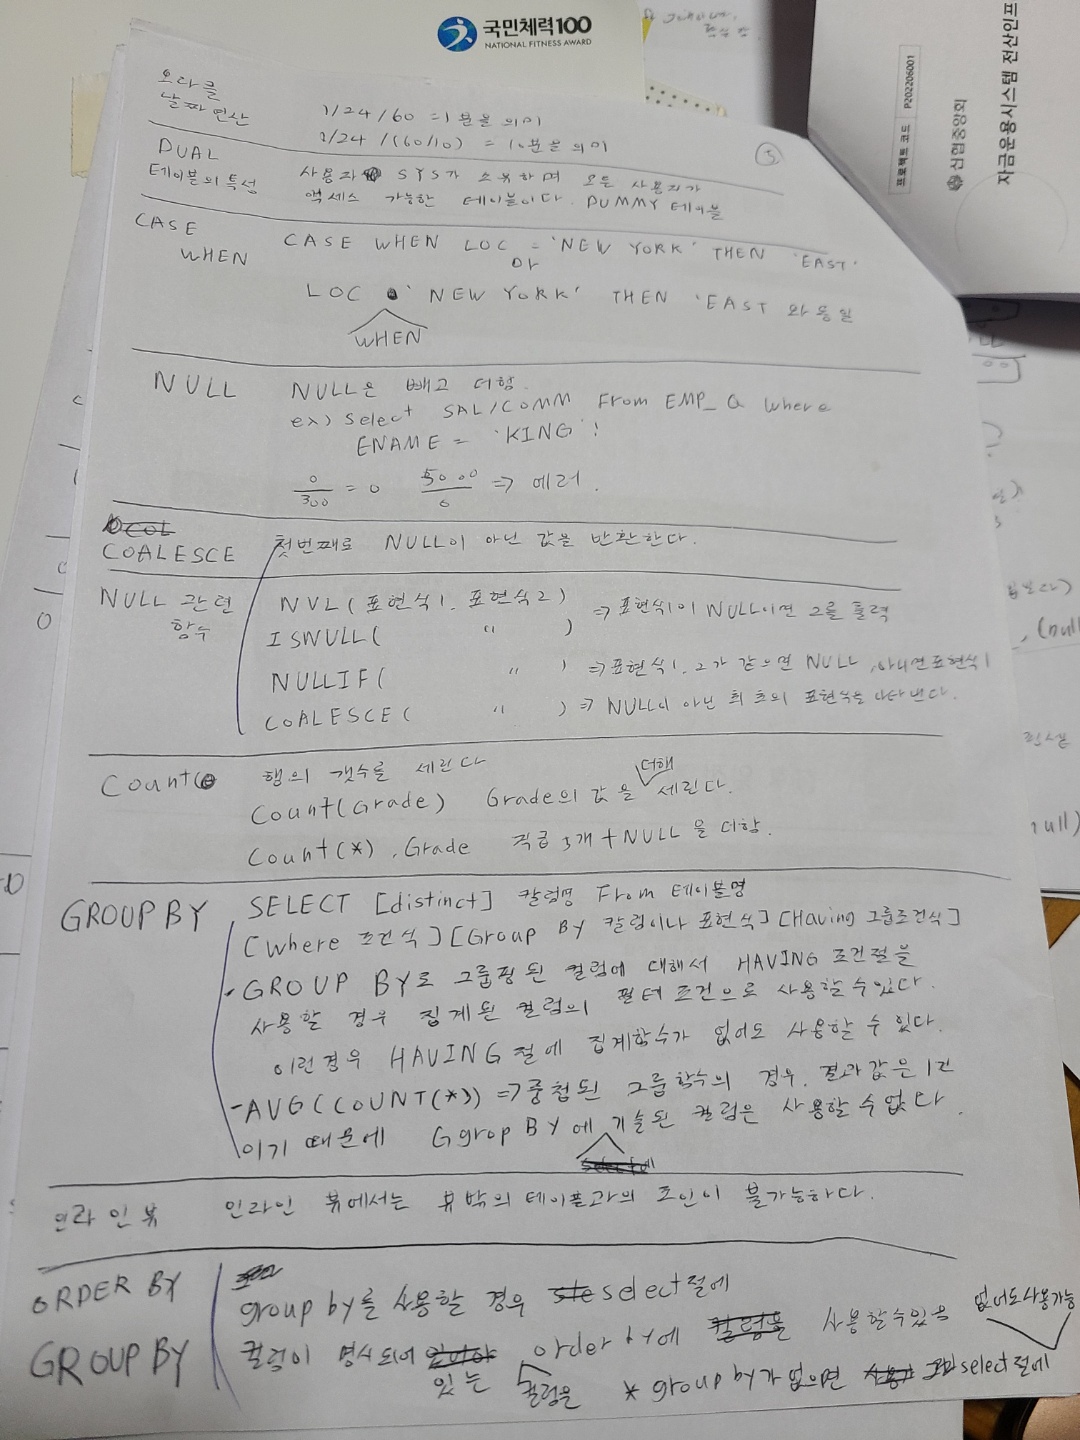 국민체력100
NATIONAL FITNESS AWARD
프로젝트 코드 P202206001
신협중앙회
자금운용시스템 전산인프
5
오라클
날짜 연산
1/24/60 = 1분을 의미
1/24/(60/10) = 10분을 의미
DUAL
테이블의 특성
사용자 SYS가 소유하며 모든 사용자가
액세스 가능한 테이블이다. DUMMY 테이블
CASE
WHEN
CASE WHEN LOC = 'NEW YORK' THEN 'EAST'
or
LOC 'NEW YORK' THEN 'EAST 와 동일
WHEN
NULL
NULL은 빼고 더함.
ex) Select SAL/COMM From EMP_Q where
ENAME = 'KING'!
0/300 = 0 5000/0 => 에러.
COALESCE
첫번째로 NULL이 아닌 값을 반환한다.
NULL 관련
함수
NVL(표현식1, 표현식2) => 표현식1이 NULL이면 2를 출력
ISNULL( " )
NULLIF( " ) => 표현식1, 2가 같으면 NULL, 아니면 표현식1
COALESCE( " ) => NULL이 아닌 최초의 표현식을 나타낸다.
Count
행의 갯수를 세린다
더해
Count(Grade) Grade의 값을 세린다.
Count(*), Grade 직급 3개 + NULL을 더함.
GROUP BY
SELECT [distinct] 칼럼명 From 테이블명
[Where 조건식] [Group By 칼럼이나 표현식] [Having 그룹조건식]
- GROUP BY로 그룹핑된 컬럼에 대해서 HAVING 조건절을
사용할 경우 집계된 컬럼의 필터 조건으로 사용할 수 있다.
이런 경우 HAVING 절에 집계함수가 없어도 사용할 수 있다.
- AVG(COUNT(*)) => 중첩된 그룹함수의 경우, 결과값은 1건
이기 때문에 Ggrop BY에 기술된 컬럼은 사용할 수 없다.
인라인뷰
인라인 뷰에서는 뷰 밖의 테이블과의 조인이 불가능하다.
ORDER BY
GROUP BY
group by를 사용할 경우 select절에
컬럼이 명시되어 있는 order by에 컬럼을 사용할수있음
* group by가 없으면 select절에
없어도 사용가능